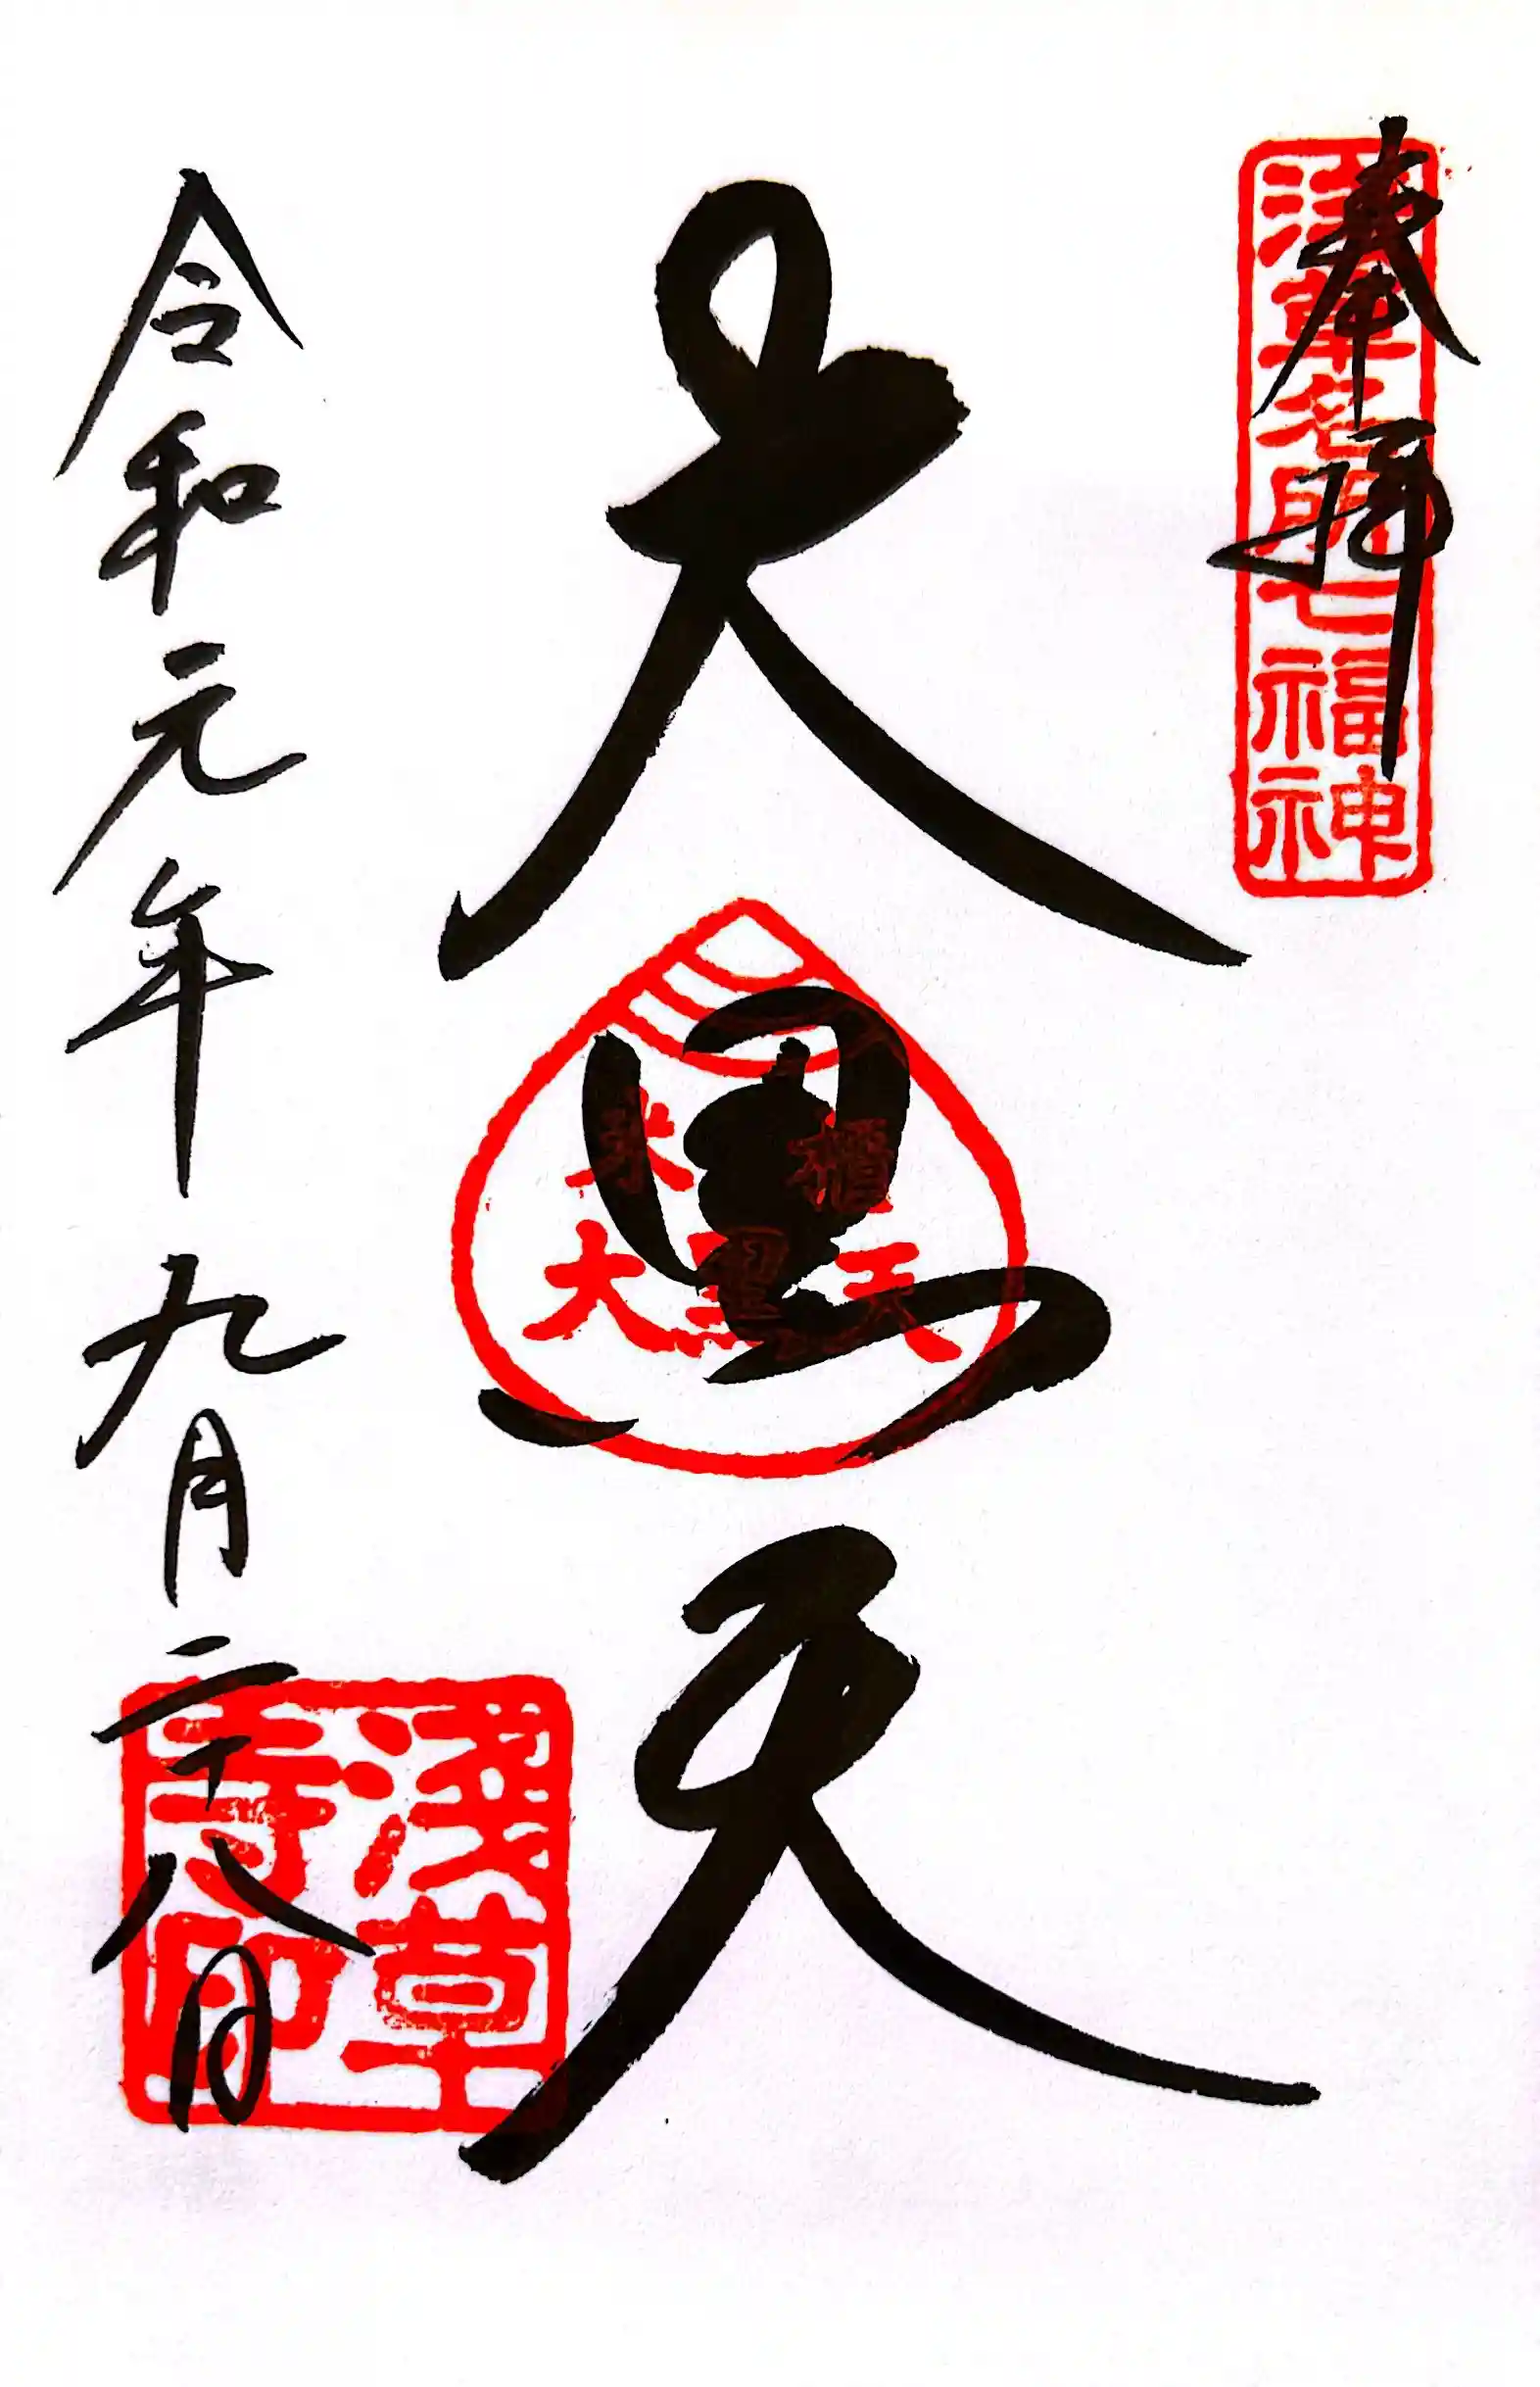 奉拝
浅草名所七福神
大黒天
米櫃
大黒天
令和元年九月二十八日
浅草
寺印